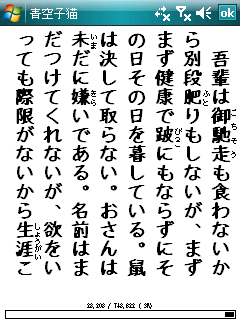 青空子猫
ok
吾輩は御馳走も食わないか
ごちそう
ら別段肥りもしないが、まず
ふと
まず健康で跛にもならずにそ
びっこ
の日その日を暮している。鼠
は決して取らない。おさんは
未だに嫌いである。名前はま
いま
きら
だつけてくれないが、欲をい
っても際限がないから生涯こ
しょうがい